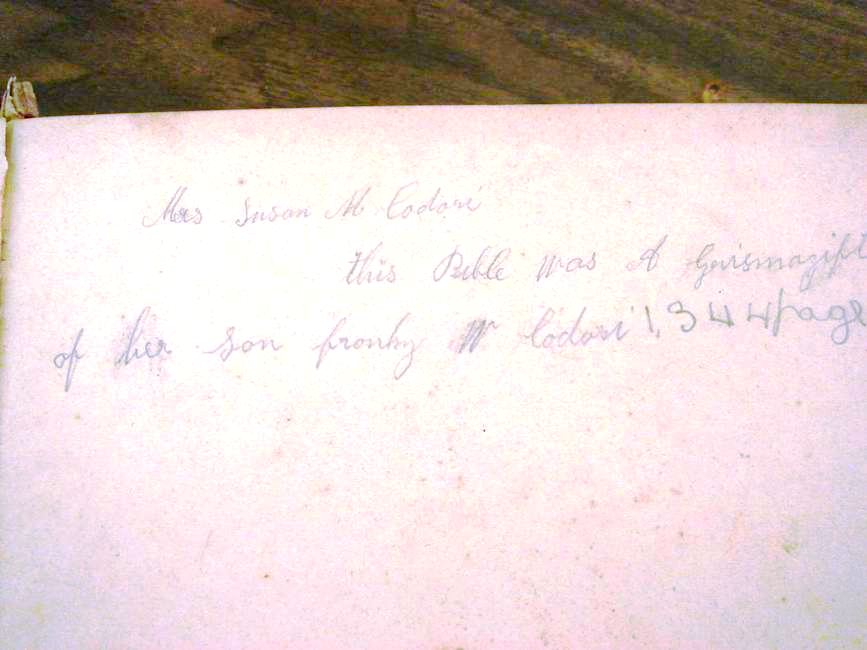 Mrs Susan M Codori
this Bible was A
of her son franky W Codori 1,344 page